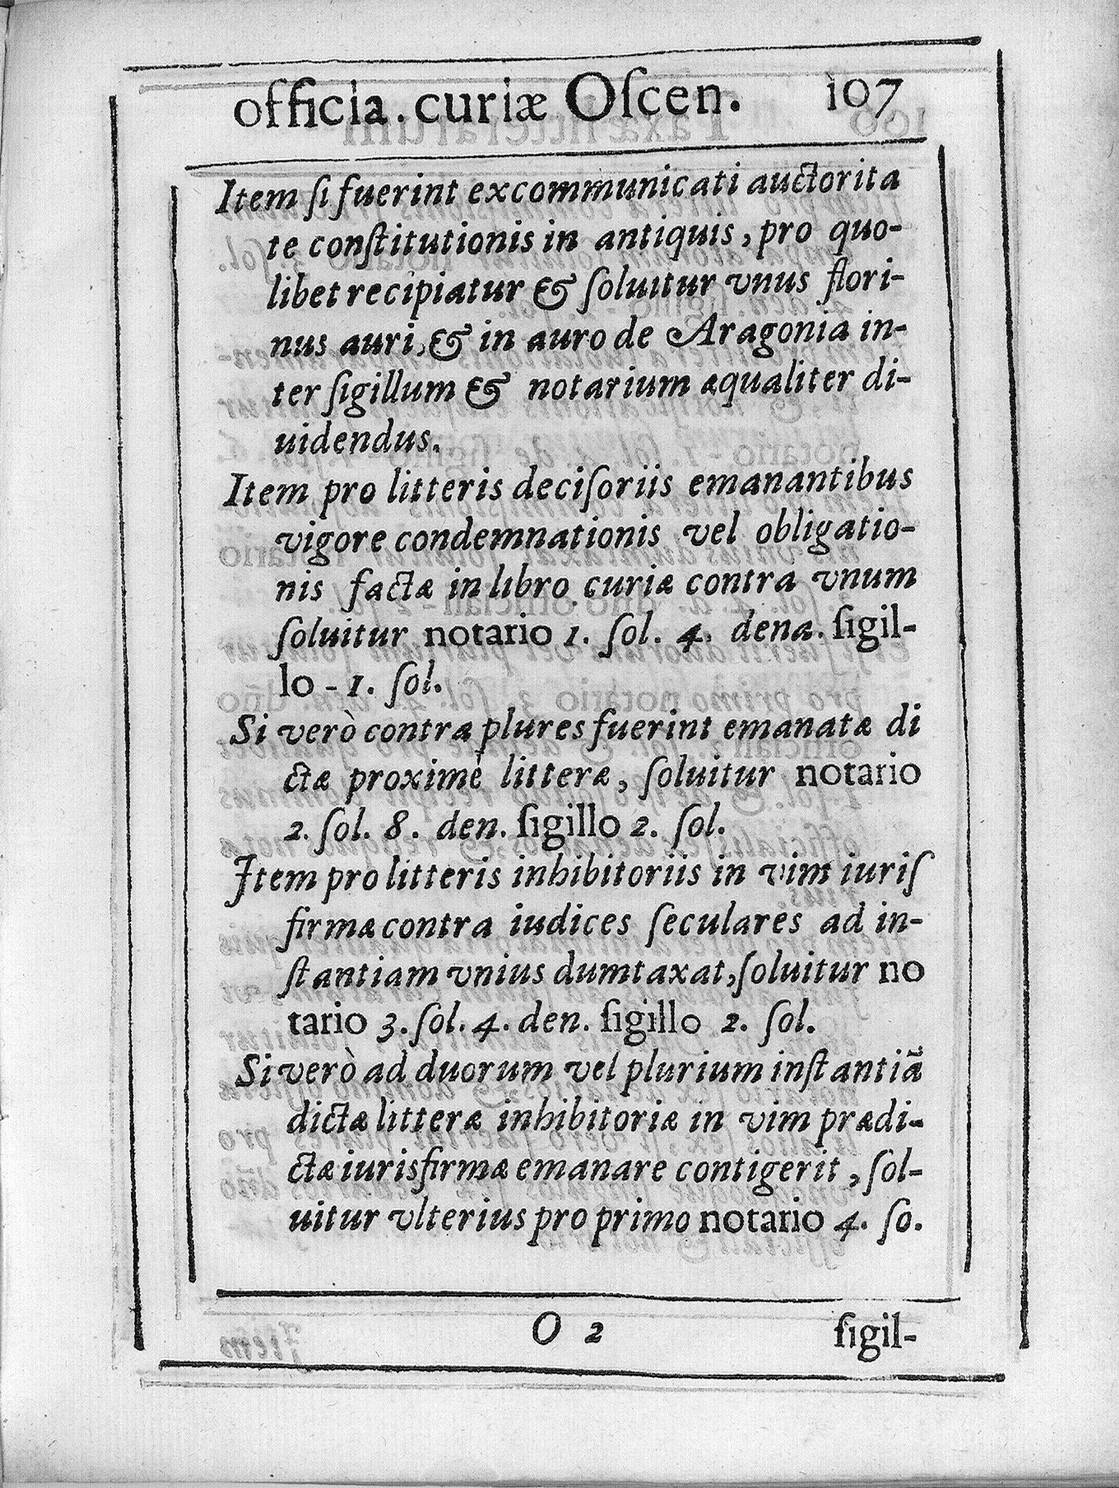 officia. curiæ Oſcen. 107
Item ſi fuerint excommunicati auctorita
te conſtitutionis in antiquis, pro quo-
libet recipiatur & ſoluitur vnus flori-
nus auri, & in auro de Aragonia in-
ter ſigillum & notarium æqualiter di-
uidendus.
Item pro litteris deciſoriis emanantibus
vigore condemnationis vel obligatio-
nis factæ in libro curiæ contra vnum
ſoluitur notario 1. ſol. 4. dena. ſigil-
lo - 1. ſol.
Si verò contra plures fuerint emanatæ di
ctæ proximè litteræ, ſoluitur notario
2. ſol. 8. den. ſigillo 2. ſol.
Item pro litteris inhibitoriis in vim iuriſ
firmæ contra iudices ſeculares ad in-
ſtantiam vnius dumtaxat, ſoluitur no
tario 3. ſol. 4. den. ſigillo 2. ſol.
Si verò ad duorum vel plurium inſtantiã
dictæ litteræ inhibitoriæ in vim prædi-
ctæ iurisfirmæ emanare contigerit, ſol-
uitur vlterius pro primo notario 4. ſo.
O 2 ſigil-